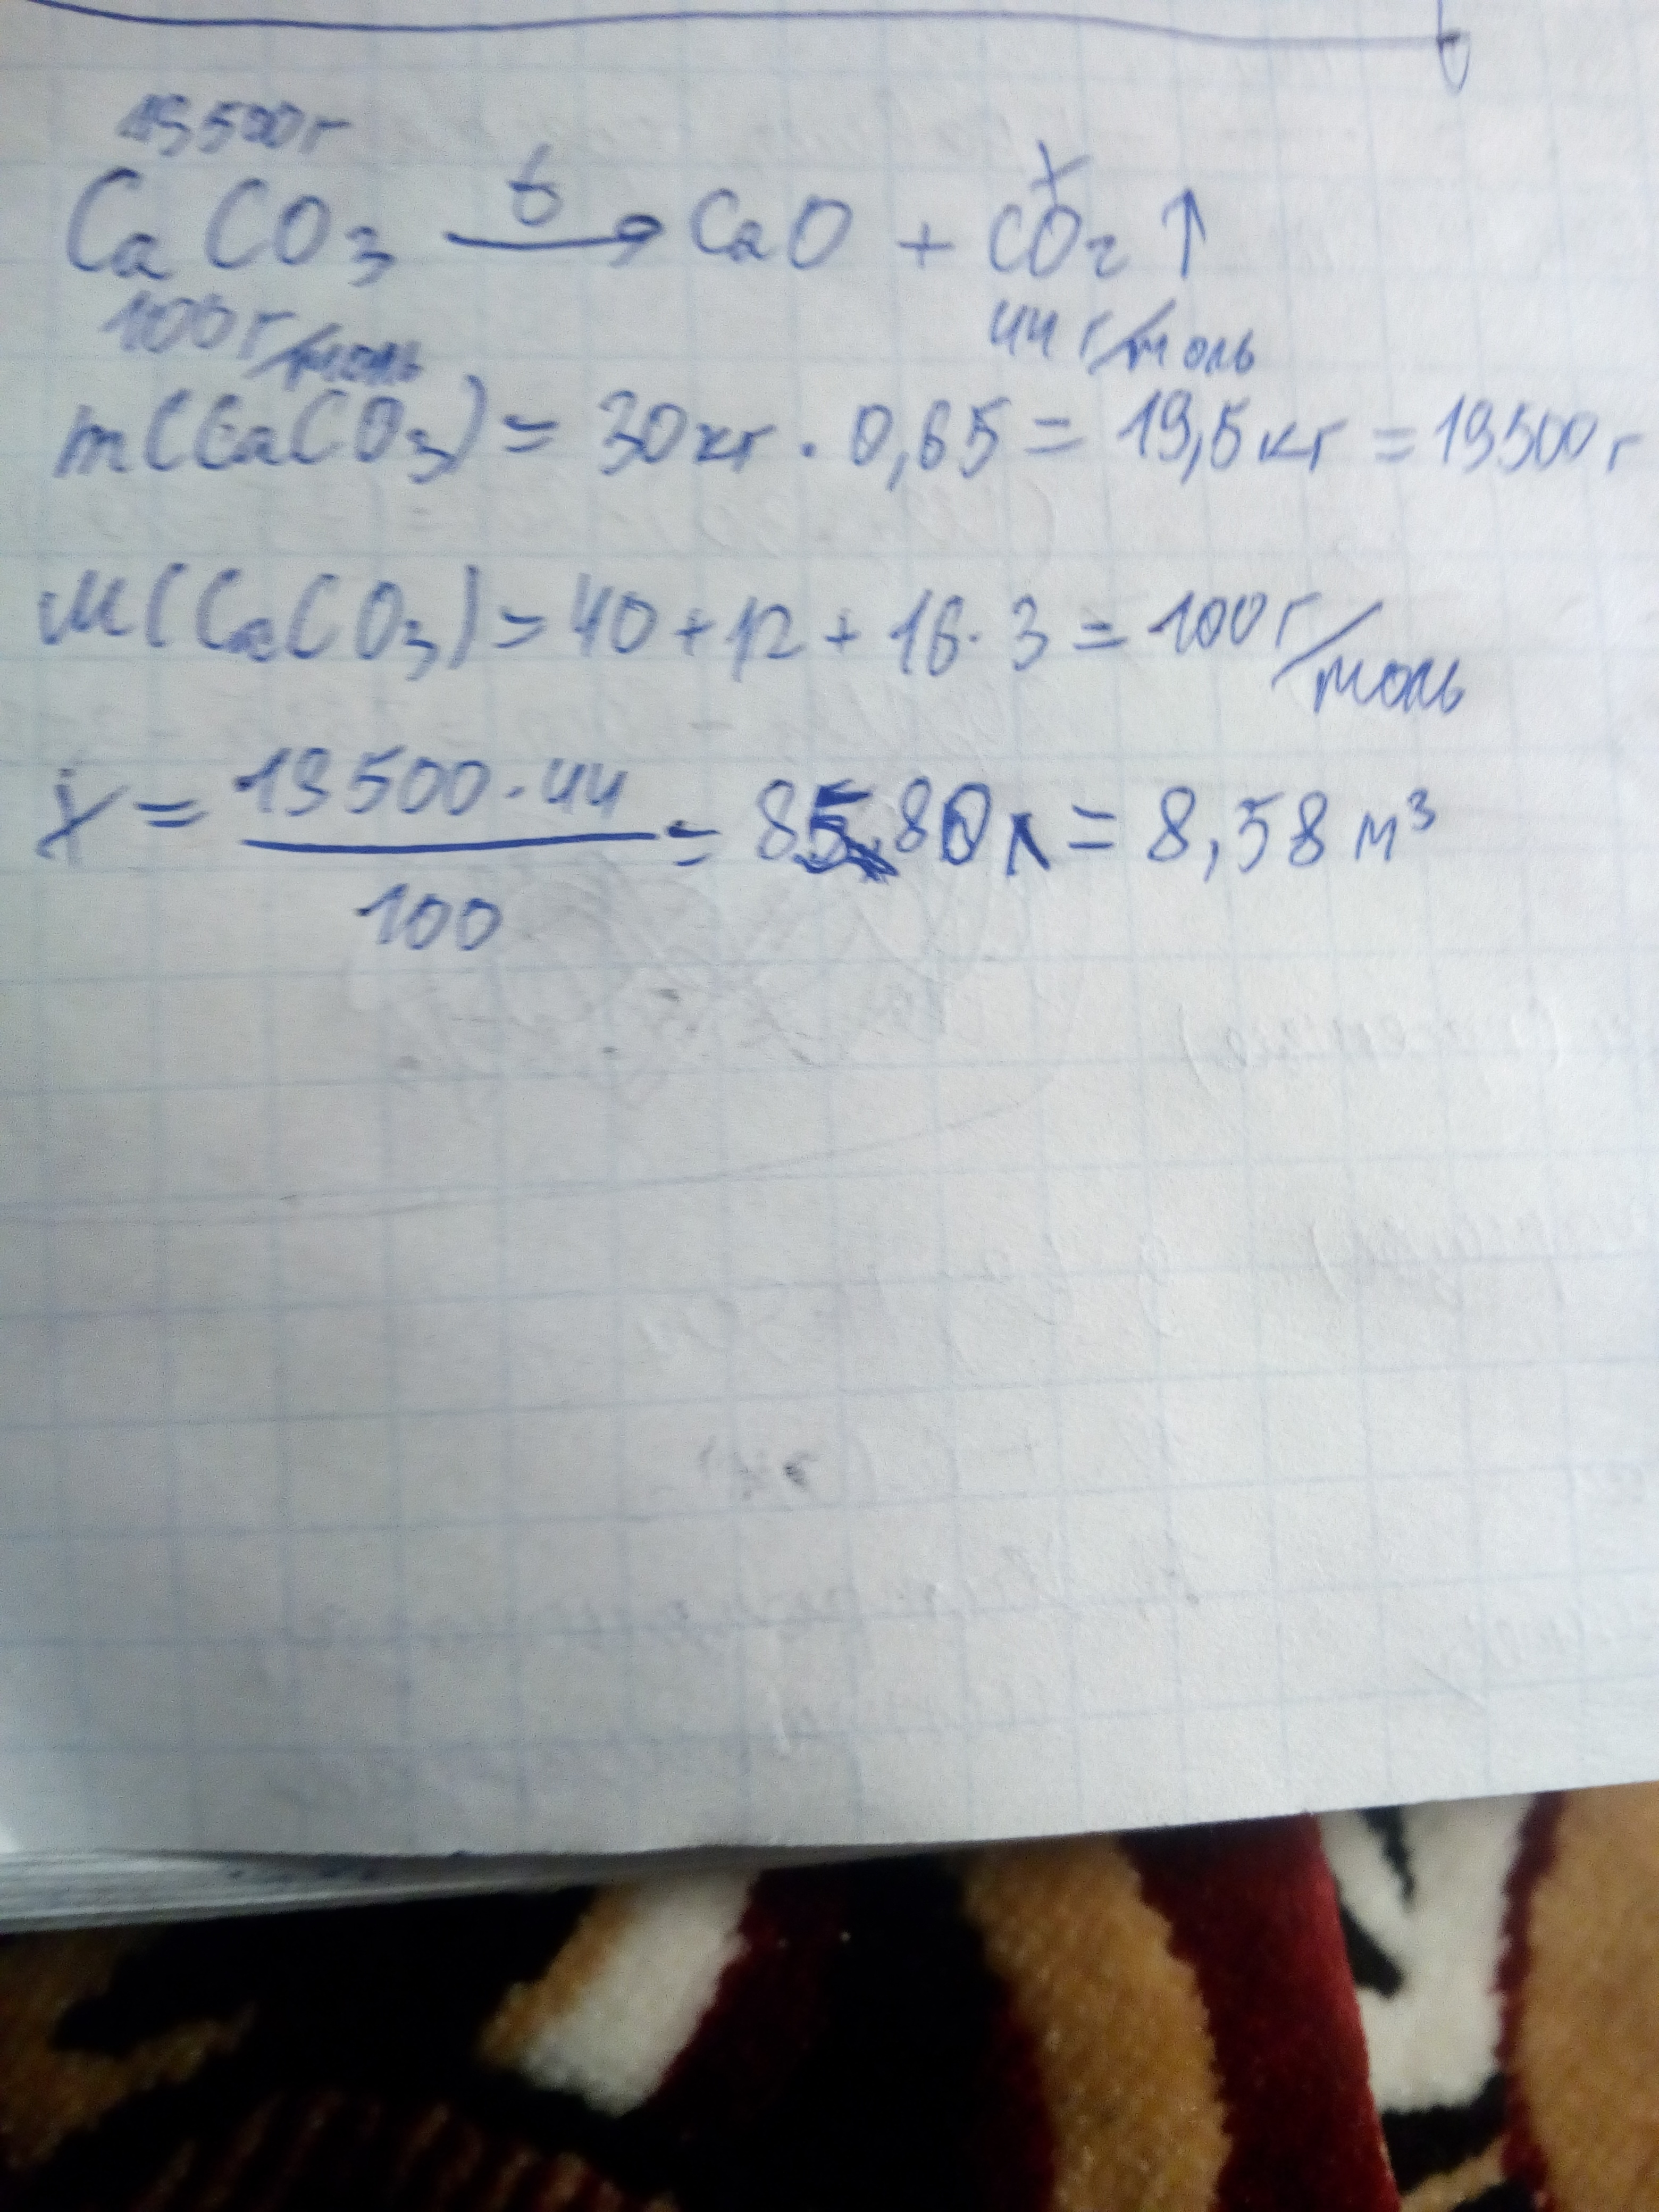 19500г
t
x
CaCO₃ → CaO + CO₂ ↑
100 г/моль 44 г/моль
m(CaCO₃) = 30 кг · 0,65 = 19,5 кг = 19500 г
M(CaCO₃) = 40 + 12 + 16 · 3 = 100 г/моль
x = 19500 · 44
100
= 8580 л = 8,58 м³